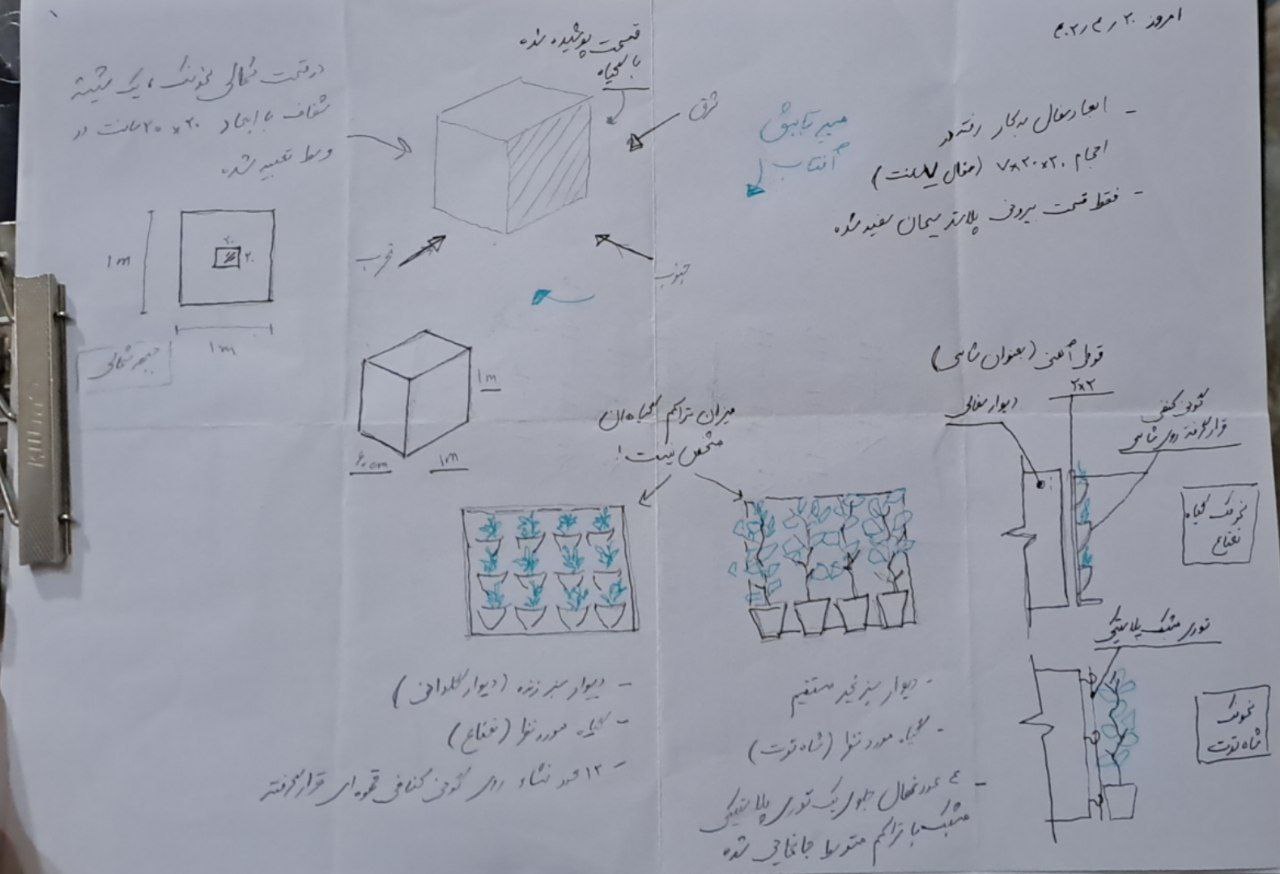 قسمت پوشیده شده
با گیاه
در قسمت شمالی نمونک، یک شیشه
شفاف با ابعاد ۲۰×۲۰ سانت در
وسط تعبیه شده
شرق
مسیر تابش
آفتاب
امروز
- ابعاد سفال بکار رفته در
احجام ۲۰×۲۰×۷ (سفال سانت)
- فقط قسمت بیرونی پلاستر سیمان سفید شده
غرب
جنوب
۲۰
۲۰
1 m
1 m
جبهه شمالی
1 m
۶۰ cm
1 m
میزان تراکم گیاهان
مشخص نیست!
قوطی آهنی (بعنوان شاسی)
۲×۲
دیوار سفالی
گونی کنفی
قرار گرفته روی شاسی
نمونک گیاه
نعناع
توری مشبک پلاستیکی
نمونک
شاه توت
- دیوار سبز زنده (دیوار گلدانی)
- گیاه مورد نظر (نعناع)
- ۱۲ عدد نشاء روی گونی کنافی قهوه ای قرار گرفته
- دیوار سبز غیر مستقیم
- گیاه مورد نظر (شاه توت)
- ۴ عدد نهال جلوی یک توری پلاستیکی
مشبک با تراکم متوسط جانمایی شده